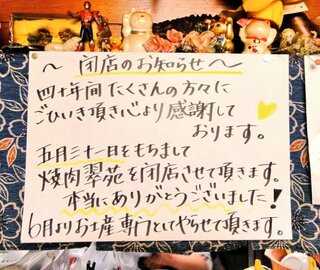 ～閉店のお知らせ～
四十年間たくさんの方々に
ごひいき頂き心より感謝して
おります。
五月三十一日をもちまして
焼肉翠苑を閉店させて頂きます。
本当にありがとうございました!
6月よりお土産専門としてやらせて頂きます。